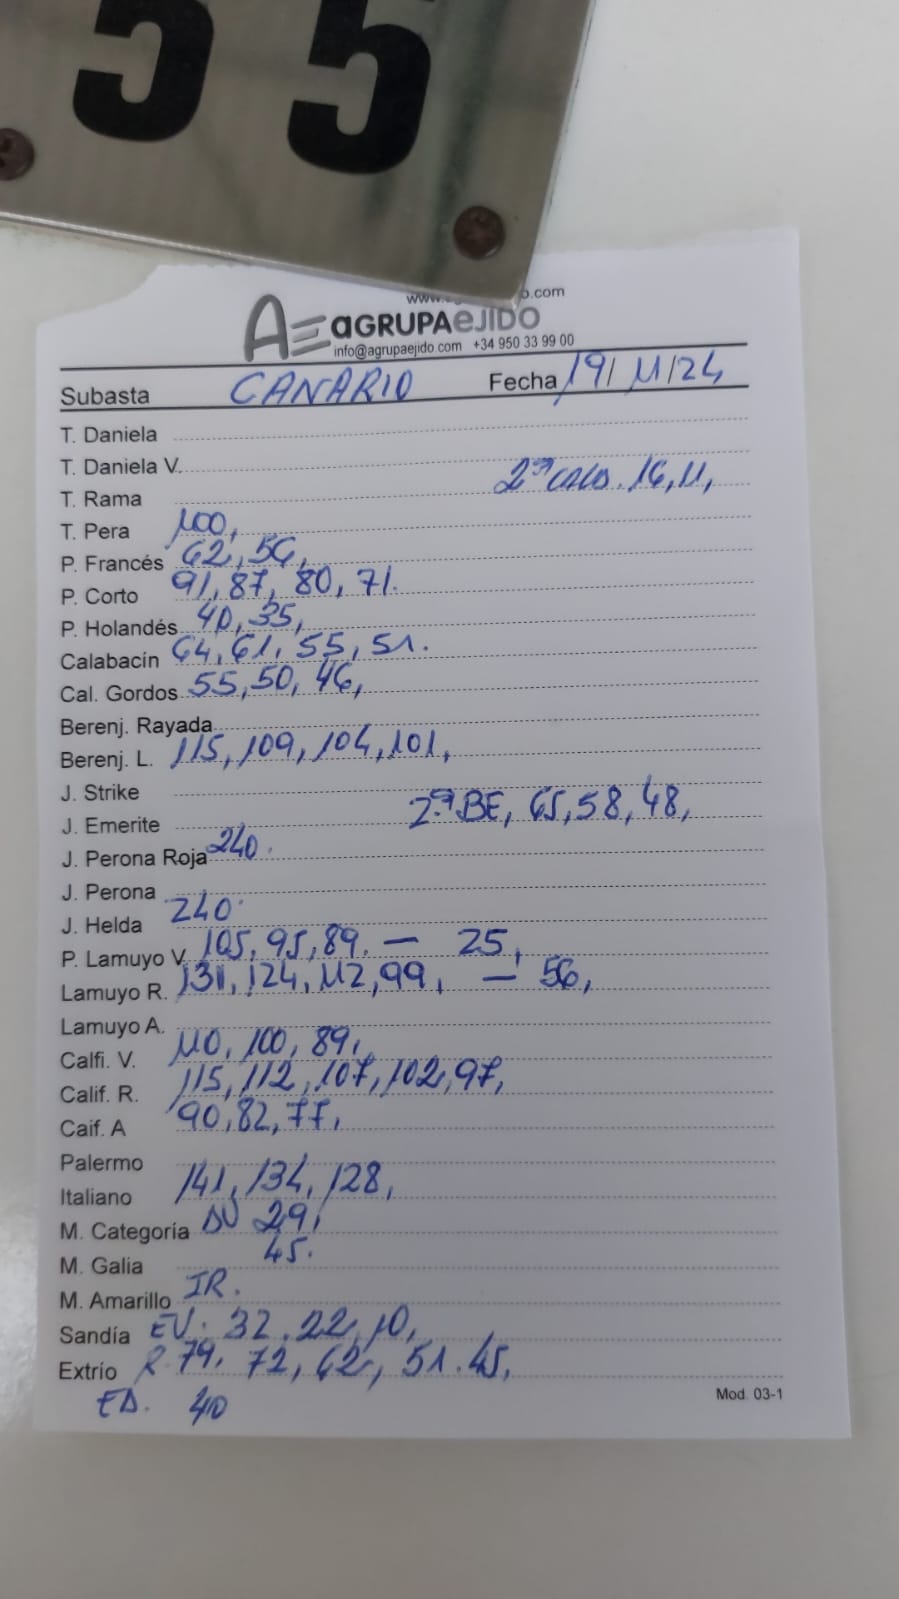 55
www. o.com
AGRUPAEJIDO
info@agrupaejido.com +34 950 33 99 00
Subasta CANARIO Fecha 19/11/24
T. Daniela
T. Daniela V.
T. Rama 2ª 16, 11,
T. Pera 100,
P. Francés 62, 56,
P. Corto 91, 87, 80, 71.
P. Holandés 40, 35,
Calabacín 64, 61, 55, 51.
Cal. Gordos 55, 50, 46,
Berenj. Rayada
Berenj. L. 115, 109, 104, 101,
J. Strike
J. Emerite 2ª BE, 65, 58, 48,
J. Perona Roja 240.
J. Perona
J. Helda 240.
P. Lamuyo V. 105, 95, 89. — 25,
Lamuyo R. 131, 124, 112, 99, — 56,
Lamuyo A.
Calfi. V. 110, 100, 89,
Calif. R. 115, 112, 107, 102, 97,
Caif. A 90, 82, 77,
Palermo
Italiano 141, 134, 128,
M. Categoría 29,
M. Galia 45.
M. Amarillo IR.
Sandía EV. 32, 22, 10,
Extrío R. 79, 72, 62, 51. 45,
ED. 40
Mod. 03-1